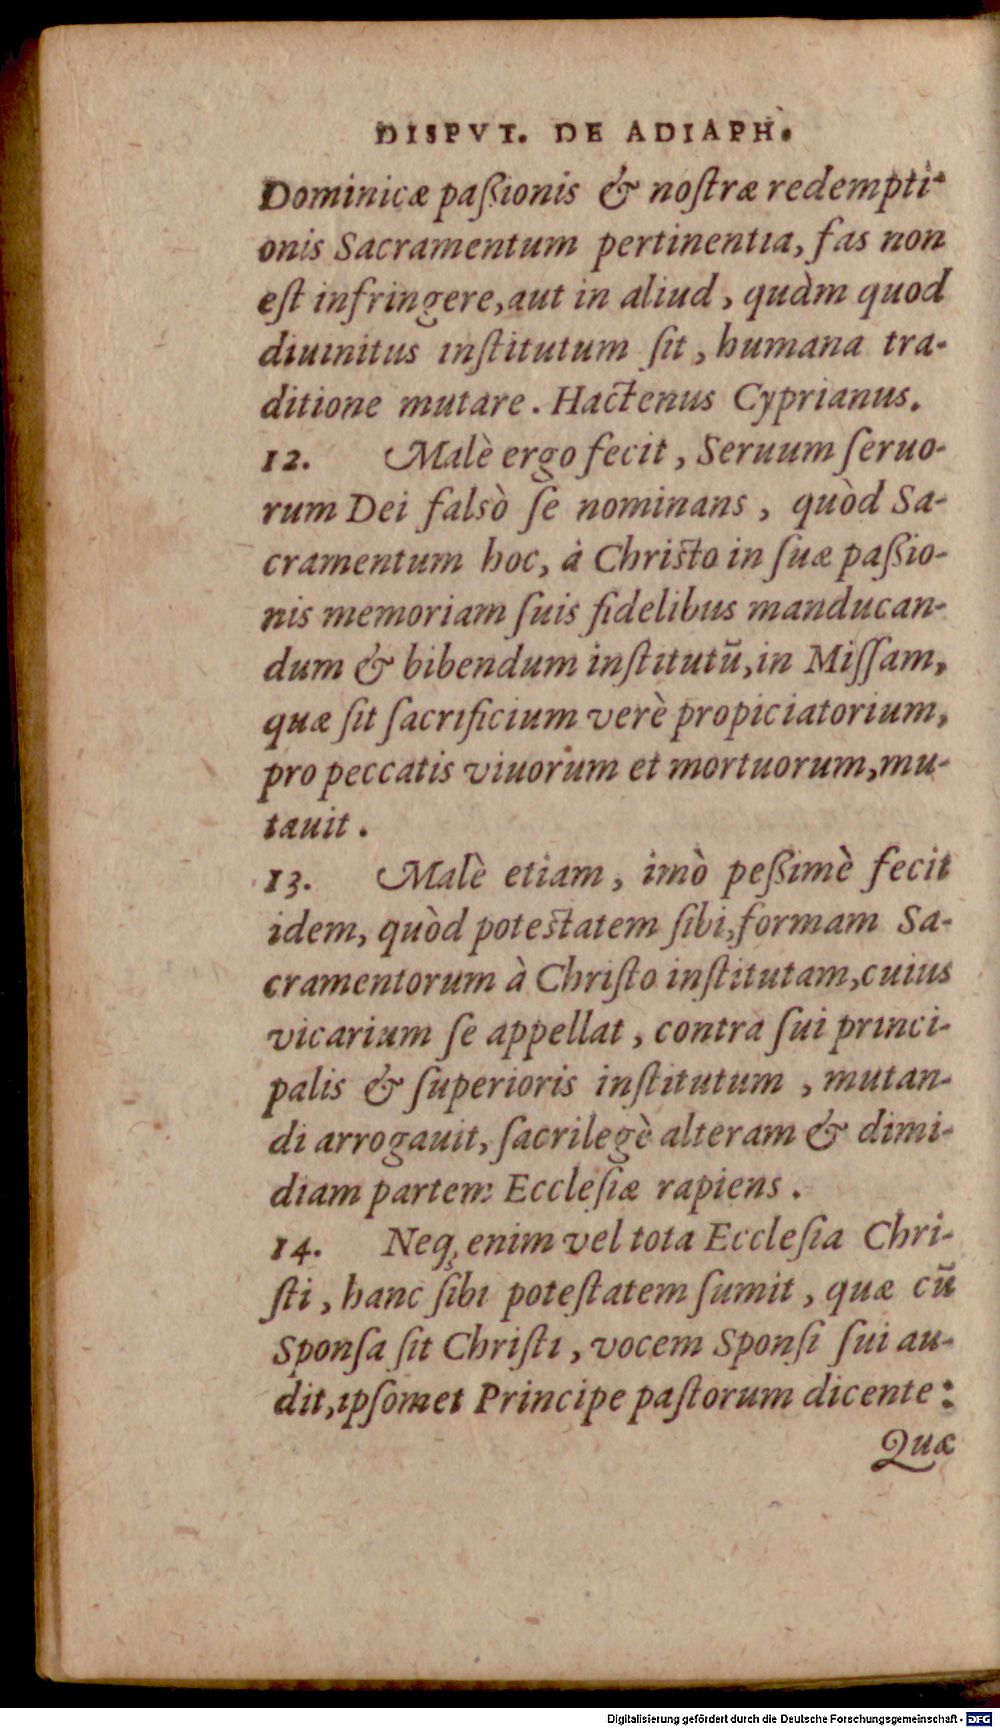 DISPVT. DE ADIAPH.
Dominicæ paßionis & noſtræ redempti-
onis Sacramentum pertinentia, fas non
eſt infringere, aut in aliud, quàm quod
diuinitus inſtitutum ſit, humana tra-
ditione mutare. Hactenus Cyprianus.
12. Malè ergo fecit, Seruum ſeruo-
rum Dei falsò ſe nominans, quòd Sa-
cramentum hoc, à Christo in ſuæ paßio-
nis memoriam ſuis fidelibus manducan-
dum & bibendum inſtitutũ, in Miſſam,
quæ ſit ſacrificium verè propiciatorium,
pro peccatis viuorum et mortuorum, mu-
tauit.
13. Malè etiam, imò peßimè fecit
idem, quòd potestatem ſibi, formam Sa-
cramentorum à Chriſto inſtitutam, cuius
vicarium ſe appellat, contra ſui princi-
palis & ſuperioris inſtitutum, mutan-
di arrogauit, ſacrilegè alteram & dimi-
diam partem Eccleſiæ rapiens.
14. Neq; enim vel tota Eccleſia Chri-
ſti, hanc ſibi poteſtatem ſumit, quæ cũ
Sponſa ſit Chriſti, vocem Sponſi ſui au-
dit, ipſomet Principe paſtorum dicente:
Quæ
Digitalisierung gefördert durch die Deutsche Forschungsgemeinschaft - DFG